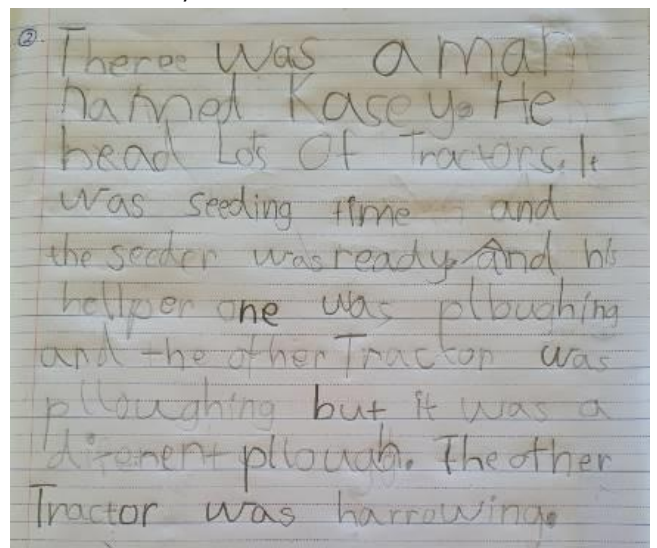 ②. Theree was a man
hamed Kasey. He
head Lots Of Tractors. It
was seeding time and
the seeder was ready. And his
hellper one was plloughing
and the other Tractor was
plloughing but it was a
difenent pllough. The other
Tractor was harrowing.